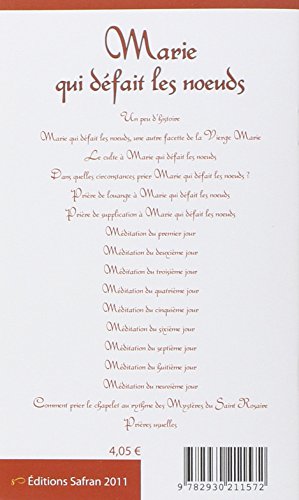 Marie
qui défait les noeuds
Un peu d'histoire
Marie qui défait les noeuds, une autre facette de la Vierge Marie
Le culte à Marie qui défait les noeuds
Dans quelles circonstances prier Marie qui défait les noeuds ?
Prière de louange à Marie qui défait les noeuds
Prière de supplication à Marie qui défait les noeuds
Méditation du premier jour
Méditation du deuxième jour
Méditation du troisième jour
Méditation du quatrième jour
Méditation du cinquième jour
Méditation du sixième jour
Méditation du septième jour
Méditation du huitième jour
Méditation du neuvième jour
Comment prier le chapelet au rythme des Mystères du Saint Rosaire
Prières usuelles
4,05 €
9 782930 211572
Éditions Safran 2011